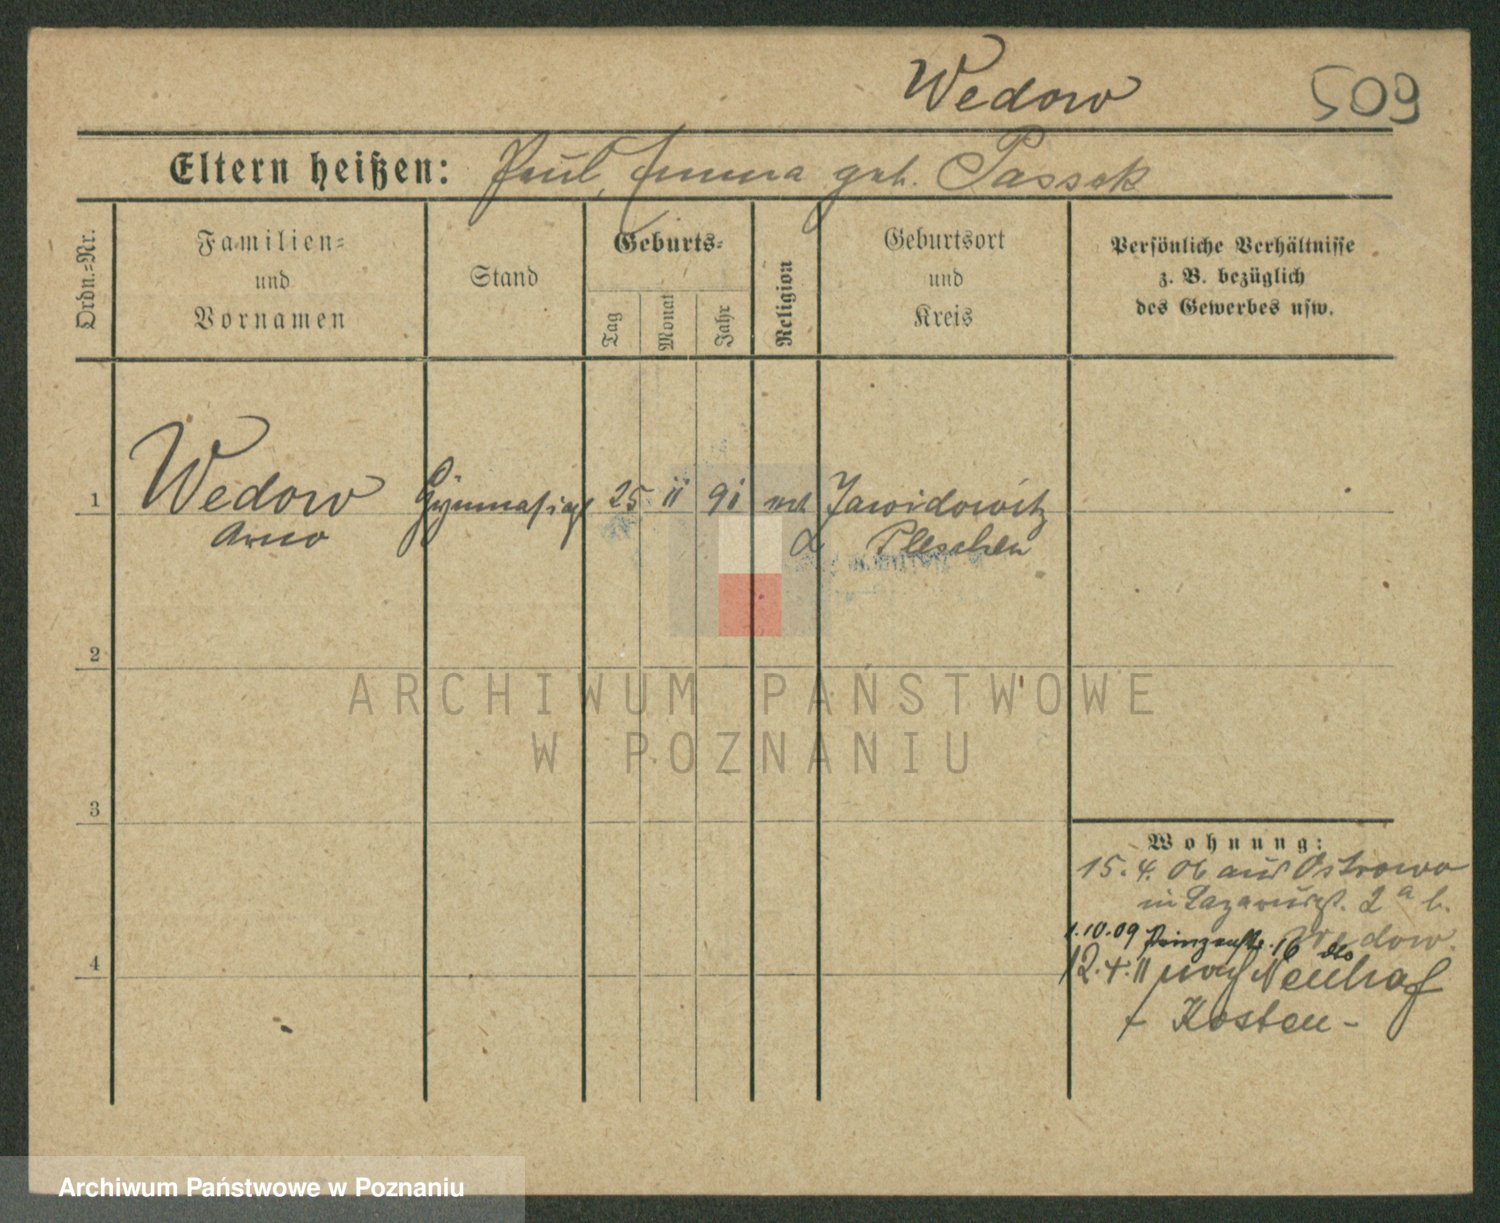 Wedow
509
Eltern heißen: Paul, Emma geb. Passek
Ordn.=Nr.
Familien=
und
Vornamen
Stand
Geburts=
Tag
Monat
Jahr
Religion
Geburtsort
und
Kreis
Persönliche Verhältnisse
z. B. bezüglich
des Gewerbes usw.
1
Wedow
Arno
Gymnasiast
25 ii 91
Pleschen
2
ARCHIWUM PAŃSTWOWE
W POZNANIU
3
Wohnung:
15. 4. 06 aus Ostrowo
in Lazarusstr. 2ª b.
Wedow.
1.10.09 Prinzenstr. 16
4
12.4.11 nach Neuhof
Kosten -
Archiwum Państwowe w Poznaniu